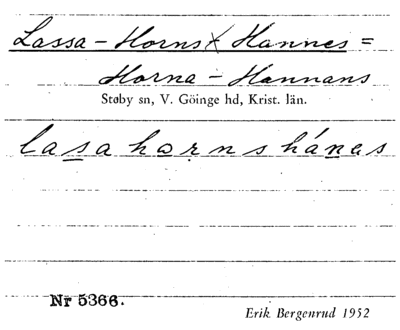 Lassa-Horns Hannes =
Horna-Hannans
Støby sn, V. Göinge hd, Krist. län.
lasa horns hánas
Nr 5366.
Erik Bergenrud 1952